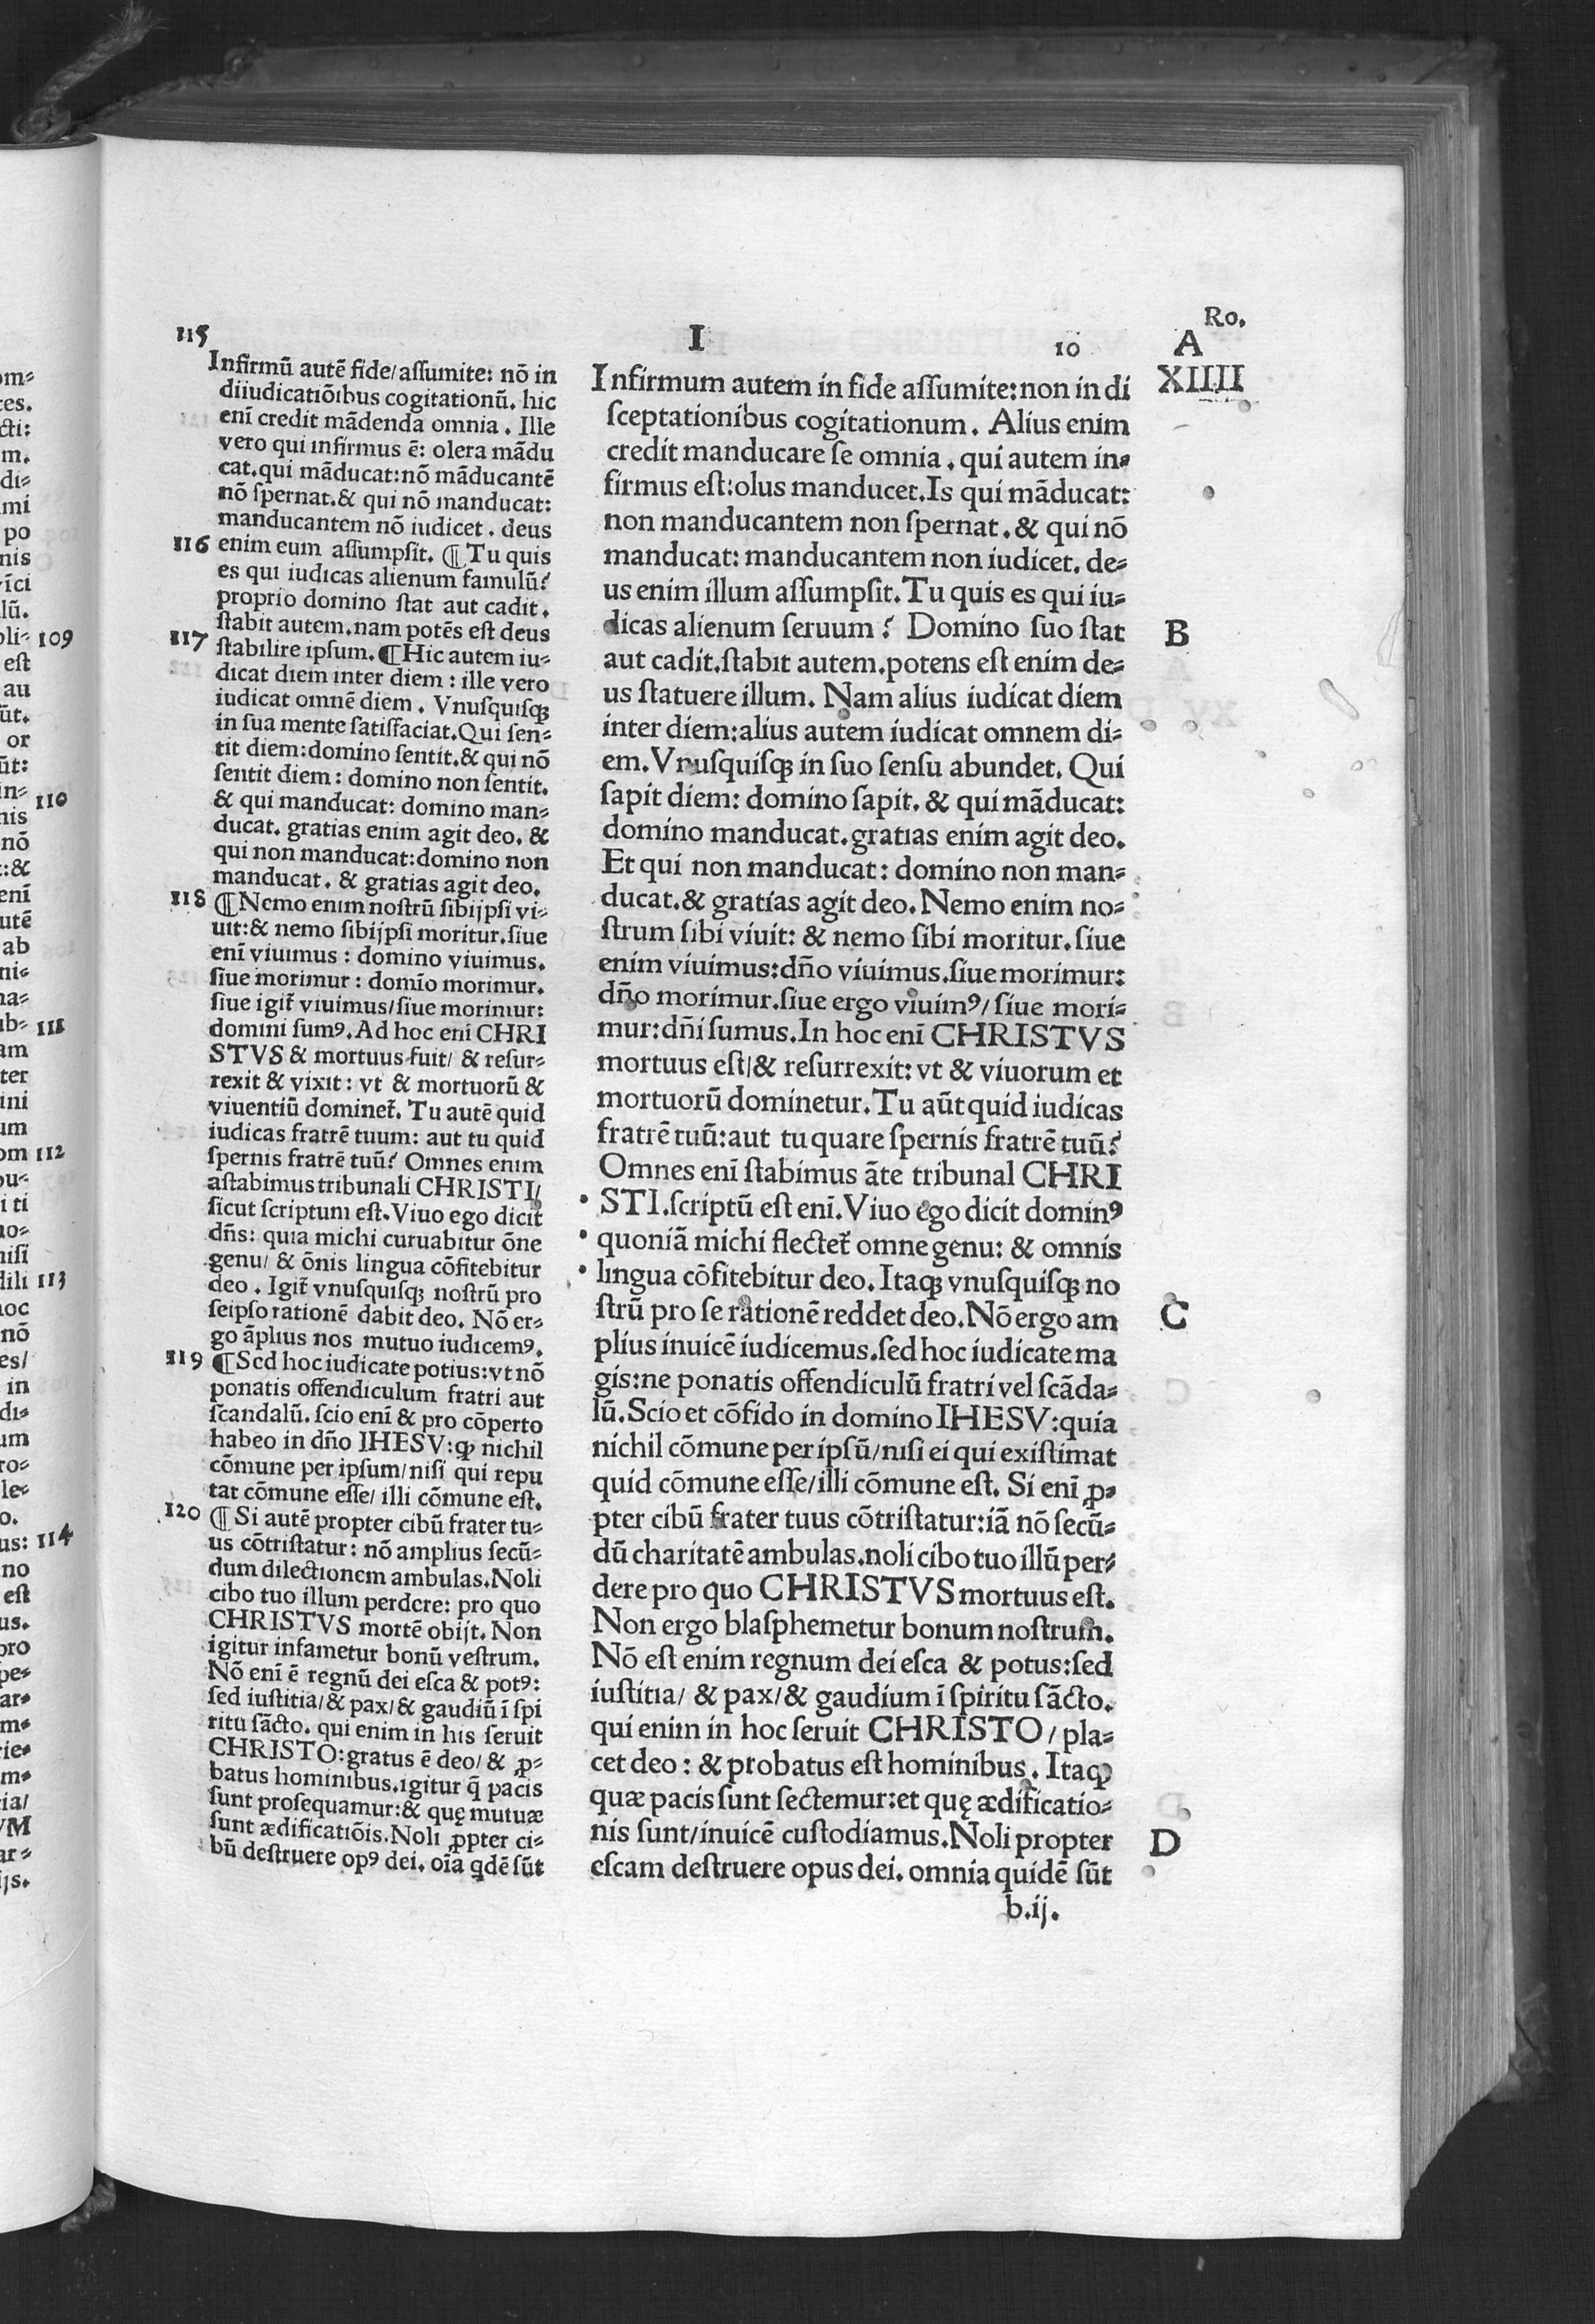 115
I
10
Ro.
A
XIIII
Infirmū autē fide/ aſſumite: nō in
diiudicatiōibus cogitationū. hic
enī credit mādenda omnia. Ille
vero qui infirmus ē: olera mādu
cat. qui māducat: nō māducantē
nō ſpernat. & qui nō manducat:
manducantem nō iudicet. deus
116 enim eum aſſumpſit. ¶ Tu quis
es qui iudicas alienum famulū?
proprio domino ſtat aut cadit.
ſtabit autem. nam potēs eſt deus
117 ſtabilire ipſum. ¶ Hic autem iu-
dicat diem inter diem: ille vero
iudicat omnē diem. Vnuſquiſqꝫ
in ſua mente ſatiſfaciat. Qui ſen-
tit diem: domino ſentit. & qui nō
ſentit diem: domino non ſentit.
& qui manducat: domino man-
ducat. gratias enim agit deo. &
qui non manducat: domino non
manducat. & gratias agit deo.
118 ¶ Nemo enim noſtrū ſibijpſi vi-
uit: & nemo ſibijpſi moritur. ſiue
enī viuimus: domino viuimus.
ſiue morimur: domīo morimur.
ſiue igit᷑ viuimus/ ſiue morimur:
domini ſumꝰ. Ad hoc enī CHRI
STVS & mortuus fuit/ & reſur-
rexit & vixit: vt & mortuorū &
viuentiū dominet᷑. Tu autē quid
iudicas fratrē tuum: aut tu quid
ſpernis fratrē tuū? Omnes enim
aſtabimus tribunali CHRISTI/
ſicut ſcriptum eſt. Viuo ego dicit
dñs: quia michi curuabitur ōne
genu/ & ōnis lingua cōfitebitur
deo. Igit᷑ vnuſquiſqꝫ noſtrū pro
ſeipſo rationē dabit deo. Nō er-
go āplius nos mutuo iudicemꝰ.
119 ¶ Sed hoc iudicate potius: vt nō
ponatis offendiculum fratri aut
ſcandalū. ſcio enī & pro cōperto
habeo in dño IHESV: ꝙ nichil
cōmune per ipſum/ niſi qui repu
tat cōmune eſſe/ illi cōmune eſt.
120 ¶ Si autē propter cibū frater tu-
us cōtriſtatur: nō amplius ſecū-
dum dilectionem ambulas. Noli
cibo tuo illum perdere: pro quo
CHRISTVS mortē obijt. Non
igitur infametur bonū veſtrum.
Nō enī ē regnū dei eſca & potꝰ:
ſed iuſtitia/ & pax/ & gaudiū ī ſpi
ritu ſācto. qui enim in his ſeruit
CHRISTO: gratus ē deo/ & ꝓ-
batus hominibus. igitur q̄ pacis
ſunt proſequamur: & quę mutuæ
ſunt ædificatiōis. Noli ꝓpter ci-
bū deſtruere opꝰ dei. oīa qdē ſūt
Infirmum autem in fide aſſumite: non in di
ſceptationibus cogitationum. Alius enim
credit manducare ſe omnia. qui autem in-
firmus eſt: olus manducet. Is qui māducat:
non manducantem non ſpernat. & qui nō
manducat: manducantem non iudicet. de-
us enim illum aſſumpſit. Tu quis es qui iu-
dicas alienum ſeruum? Domino ſuo ſtat B
aut cadit. ſtabit autem. potens eſt enim de-
us ſtatuere illum. Nam alius iudicat diem
inter diem: alius autem iudicat omnem di-
em. Vnuſquiſqꝫ in ſuo ſenſu abundet. Qui
ſapit diem: domino ſapit. & qui māducat:
domino manducat. gratias enim agit deo.
Et qui non manducat: domino non man-
ducat. & gratias agit deo. Nemo enim no-
ſtrum ſibi viuit: & nemo ſibi moritur. ſiue
enim viuimus: dño viuimus. ſiue morimur:
dño morimur. ſiue ergo viuimꝰ/ ſiue mori-
mur: dñi ſumus. In hoc enī CHRISTVS
mortuus eſt/ & reſurrexit: vt & viuorum et
mortuorū dominetur. Tu aūt quid iudicas
fratrē tuū: aut tu quare ſpernis fratrē tuū?
Omnes enī ſtabimus āte tribunal CHRI
• STI. ſcriptū eſt enī. Viuo ego dicit dominꝰ
• quoniā michi flectet᷑ omne genu: & omnis
• lingua cōfitebitur deo. Itaqꝫ vnuſquiſqꝫ no
ſtrū pro ſe rationē reddet deo. Nō ergo am C
plius inuicē iudicemus. ſed hoc iudicate ma
gis: ne ponatis offendiculū fratri vel ſcāda-
lū. Scio et cōfido in domino IHESV: quia
nichil cōmune per ipſū/ niſi ei qui exiſtimat
quid cōmune eſſe/ illi cōmune eſt. Si enī ꝓ-
pter cibū frater tuus cōtriſtatur: iā nō ſecū-
dū charitatē ambulas. noli cibo tuo illū per-
dere pro quo CHRISTVS mortuus eſt.
Non ergo blaſphemetur bonum noſtrum.
Nō eſt enim regnum dei eſca & potus: ſed
iuſtitia/ & pax/ & gaudium ī ſpiritu ſācto.
qui enim in hoc ſeruit CHRISTO/ pla-
cet deo: & probatus eſt hominibus. Itaqꝫ
quæ pacis ſunt ſectemur: et quę ædificatio-
nis ſunt/ inuicē cuſtodiamus. Noli propter D
eſcam deſtruere opus dei. omnia quidē ſūt
b.ij.
109
110
111
112
113
114